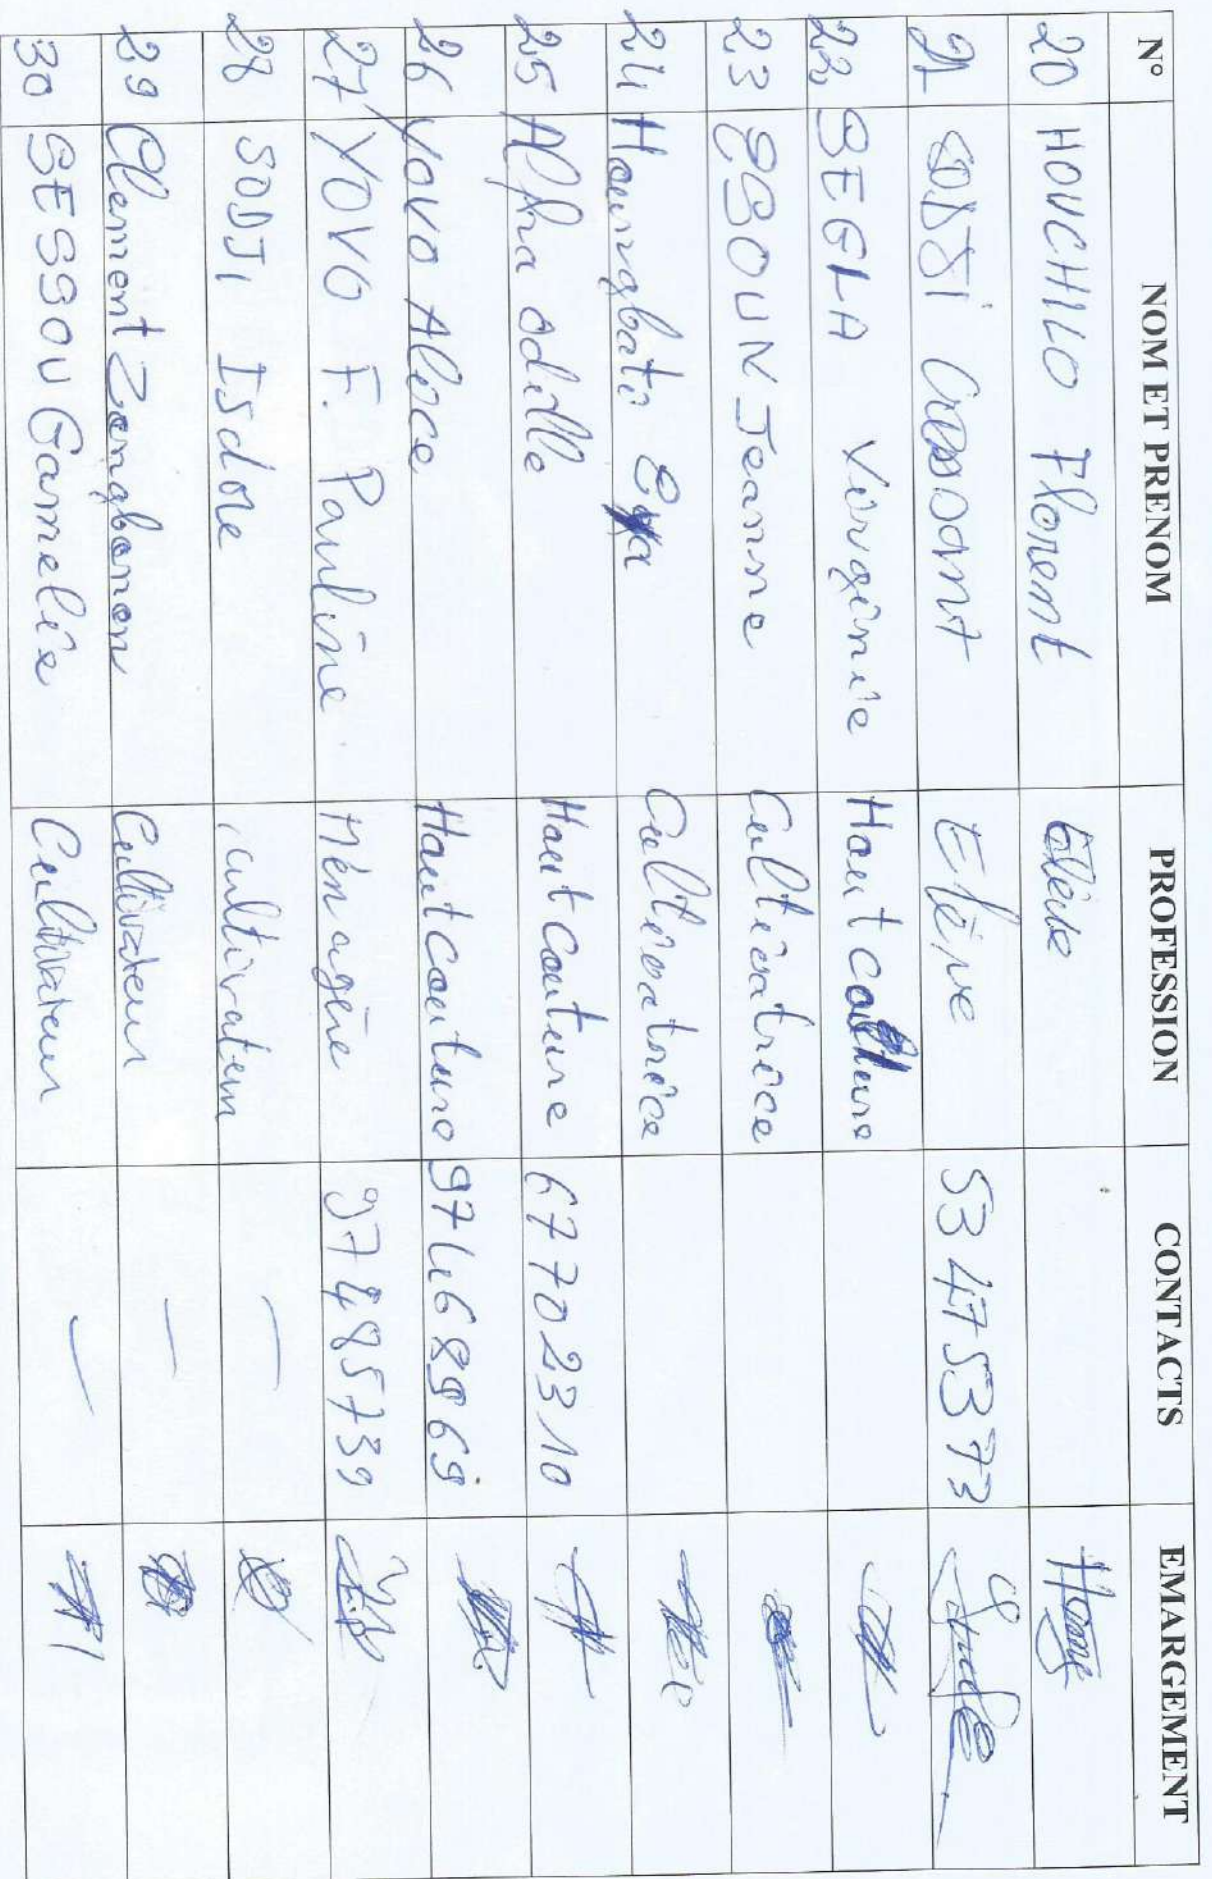 N° NOM ET PRENOM PROFESSION CONTACTS EMARGEMENT
20 HOUCHILO Florent Elève
21 SODJI Cressant Elève 53475373
22 SEGLA Virginie Haut couture
23 EGOUN Jeanne Cultivatrice
24 Houngbati Eya Cultivatrice
25 Alfra odille Haut couture 67702310
26 Yovo Alice Haut couture 97468969
27 YOVO F. Pauline Ménagère 97485739
28 SODJI Isdore cultivateur —
29 Clement Zongbonon Cultivateur —
30 SESSOU Gamelie Cultivateur —